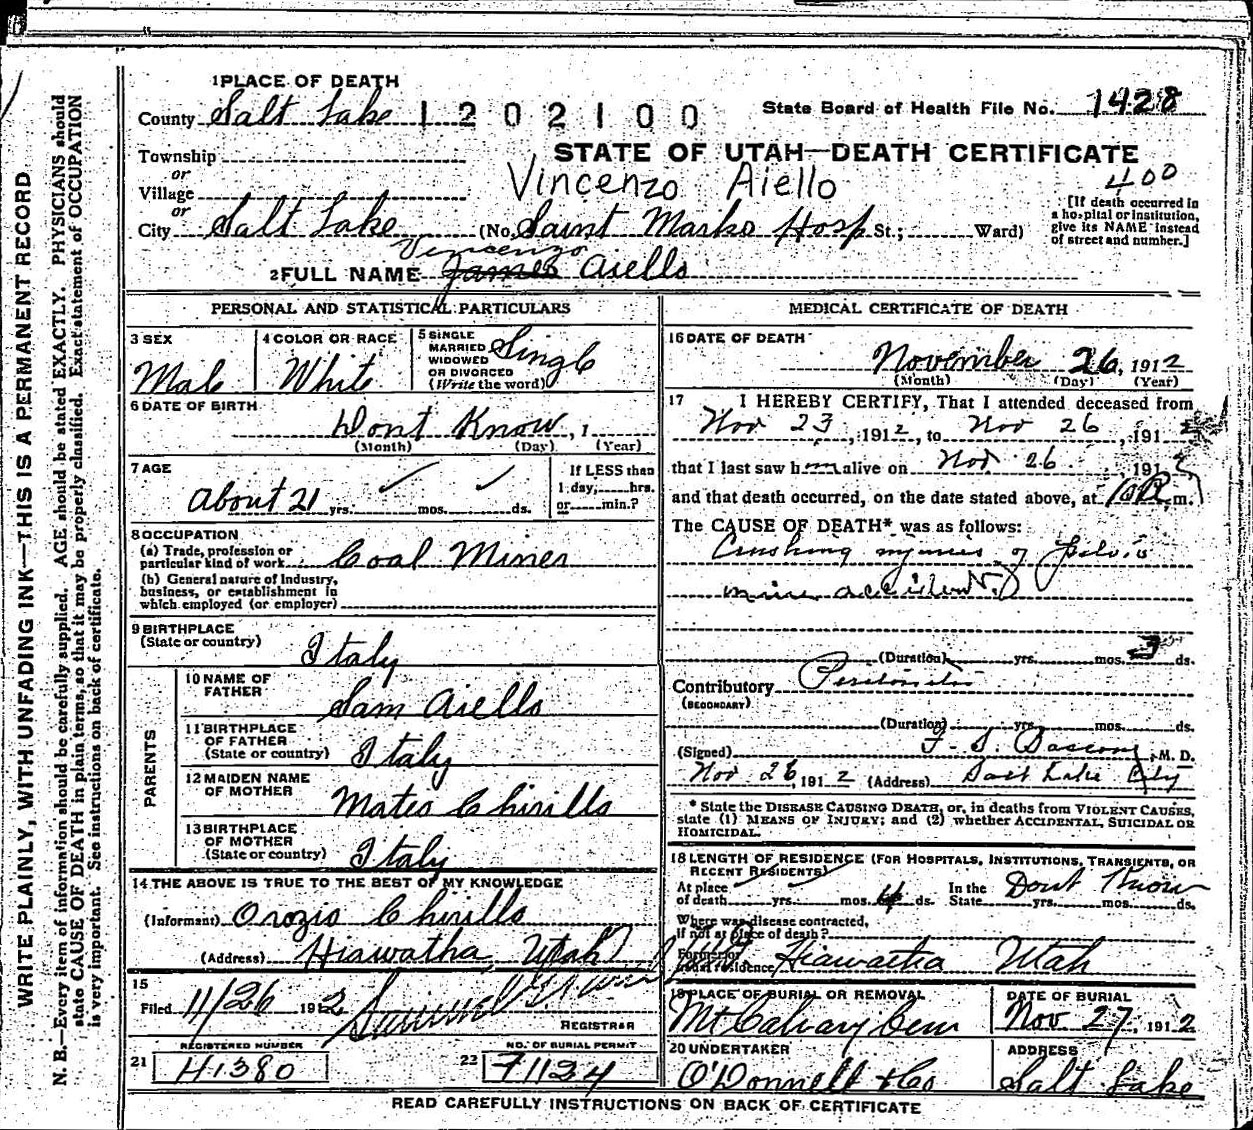 1 PLACE OF DEATH
County Salt Lake 1202100 State Board of Health File No. 1428
Township
or
Village
or
STATE OF UTAH—DEATH CERTIFICATE
Vincenzo Aiello 400
City Salt Lake (No. Saint Marks Hosp St.; Ward)
[If death occurred in
a hospital or institution,
give its NAME instead
of street and number.]
Vincenzo
2 FULL NAME James Aiello
PERSONAL AND STATISTICAL PARTICULARS
3 SEX
Male
4 COLOR OR RACE
White
5 SINGLE
MARRIED
WIDOWED
OR DIVORCED
(Write the word)
Single
6 DATE OF BIRTH
Dont Know, 1
(Month) (Day) (Year)
7 AGE
About 21 yrs. mos. ds.
If LESS than
1 day, hrs.
or min.?
8 OCCUPATION
(a) Trade, profession or
particular kind of work Coal Miner
(b) General nature of Industry,
business, or establishment in
which employed (or employer)
9 BIRTHPLACE
(State or country)
Italy
PARENTS
10 NAME OF
FATHER
Sam Aiello
11 BIRTHPLACE
OF FATHER
(State or country)
Italy
12 MAIDEN NAME
OF MOTHER
Mateo Chirillo
13 BIRTHPLACE
OF MOTHER
(State or country)
Italy
14 THE ABOVE IS TRUE TO THE BEST OF MY KNOWLEDGE
(Informant) Orozio Chirillo
(Address) Hiawatha, Utah
15
Filed 11/26 1912 Samuel
REGISTRAR
REGISTERED NUMBER
21 H1380
NO. OF BURIAL PERMIT
22 71134
MEDICAL CERTIFICATE OF DEATH
16 DATE OF DEATH
November 26, 1912
(Month) (Day) (Year)
17 I HEREBY CERTIFY, That I attended deceased from
Nov 23, 1912, to Nov 26, 1912
that I last saw him alive on Nov 26, 1912
and that death occurred, on the date stated above, at 10 P. m.
The CAUSE OF DEATH* was as follows:
Crushing injuries of Pelvis
mine accident.
(Duration) yrs. mos. 3 ds.
Contributory Peritonitis
(SECONDARY)
(Duration) yrs. mos. ds.
(Signed) F. S. Bascom, M. D.
Nov 26, 1912 (Address) Salt Lake City
* State the DISEASE CAUSING DEATH, or, in deaths from VIOLENT CAUSES,
state (1) MEANS OF INJURY; and (2) whether ACCIDENTAL, SUICIDAL OR
HOMICIDAL.
18 LENGTH OF RESIDENCE (FOR HOSPITALS, INSTITUTIONS, TRANSIENTS, OR
RECENT RESIDENTS)
At place
of death yrs. mos. 4 ds.
In the
State yrs. mos. ds.
Dont Know
Where was disease contracted,
if not at place of death?
Former or
usual residence Hiawatha Utah
19 PLACE OF BURIAL OR REMOVAL
Mt Calvary Cem
DATE OF BURIAL
Nov 27, 1912
20 UNDERTAKER
O'Donnell & Co
ADDRESS
Salt Lake
READ CAREFULLY INSTRUCTIONS ON BACK OF CERTIFICATE
WRITE PLAINLY, WITH UNFADING INK—THIS IS A PERMANENT RECORD
N. B.—Every item of information should be carefully supplied. AGE should be stated EXACTLY. PHYSICIANS should
state CAUSE OF DEATH in plain terms, so that it may be properly classified. Exact statement of OCCUPATION
is very important. See instructions on back of certificate.